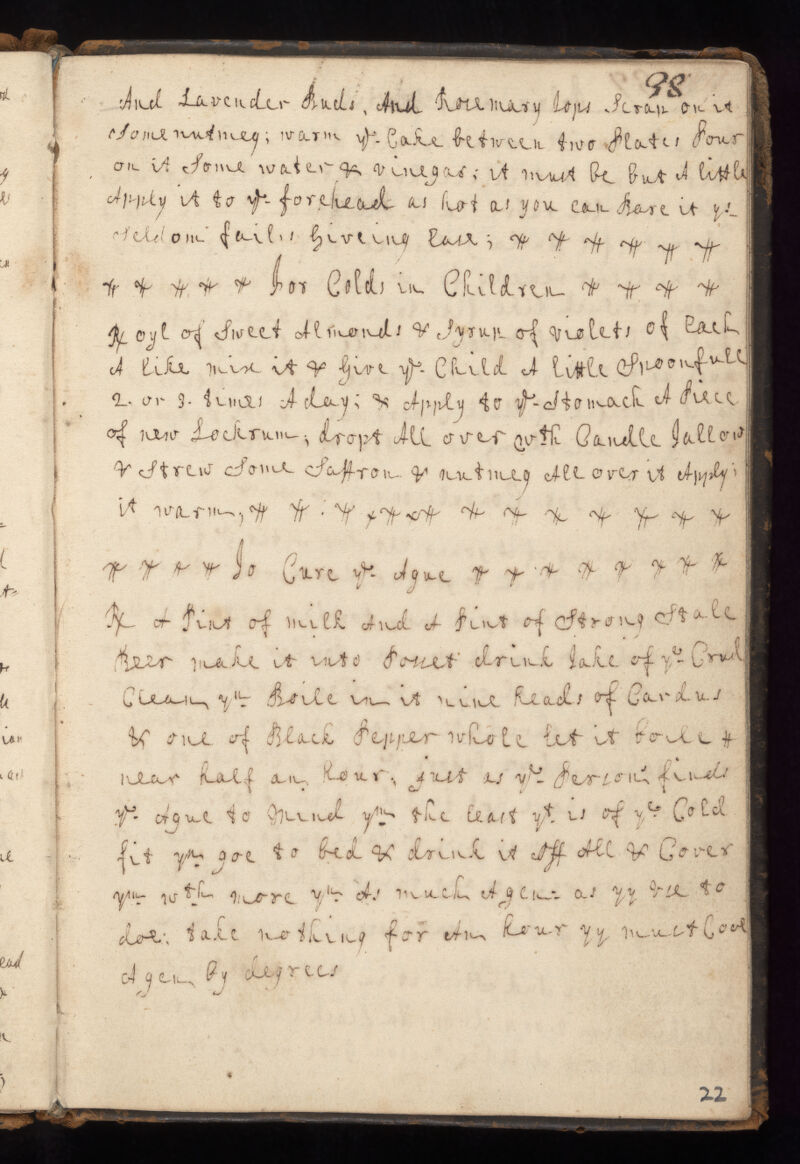 98
And Lavender Buds, And Rosemary tops Scrap on it
Some nutmeg; warm ye Cake between two Plates Pour
on it Some water & vinegar; it must be but A little
Apply it to ye forehead as hot as you can Bare it ys
Seldom fails Giveing Ease;
For Colds in Children
℞ oyl of Sweet Almonds & Syrup of violets of Each
A like mix it & Give ye Child A little Spoonfull
2. or 3. times A day; & Apply to ye Stomach A Piece
of new Lockrum; dropt All over wth Candle Tallow
& Strew Some Saffron & nutmeg All over it Apply
it warm;
To Cure ye Ague
℞ A Pint of milk And A Pint of Strong Stale
Beer make it into Posset drink Take of ye Crud
Clean yn Boile in it nine heads of Cardus
& one of Black Pepper whole let it boile
near half an hour; just as ye Person finds
ye Ague to Mind ym the least yt is of ye Cold
fit ym goe to bed & drink it off All & Cover
ym wth more yn As much Agen as yy Use to
doe; take nothing for An hour yy must Cool
Agen By degrees
22